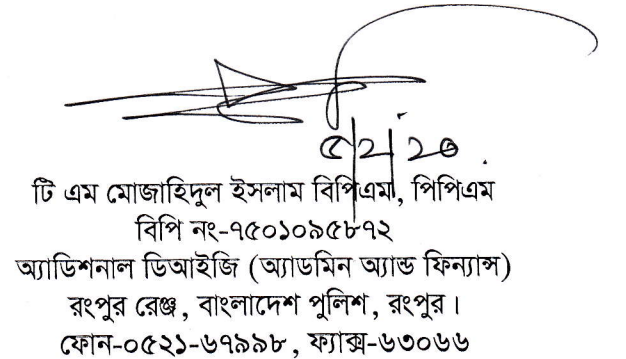 ৫/২/২০
টি এম মোজাহিদুল ইসলাম বিপিএম, পিপিএম
বিপি নং-৭৫০১০৯৫৮৭২
অ্যাডিশনাল ডিআইজি (অ্যাডমিন অ্যান্ড ফিন্যান্স)
রংপুর রেঞ্জ, বাংলাদেশ পুলিশ, রংপুর।
ফোন-০৫২১-৬৭৯৯৮, ফ্যাক্স-৬৩০৬৬